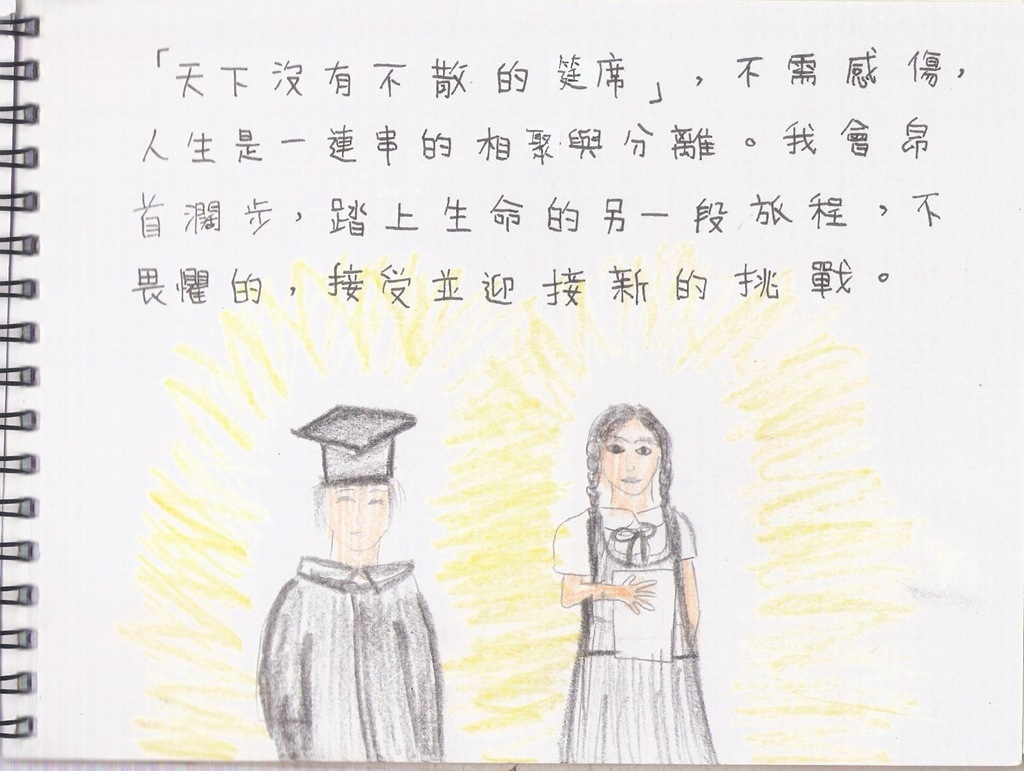 「天下沒有不散的筵席」，不需感傷，
人生是一連串的相聚與分離。我會昂
首濶步，踏上生命的另一段旅程，不
畏懼的，接受並迎接新的挑戰。